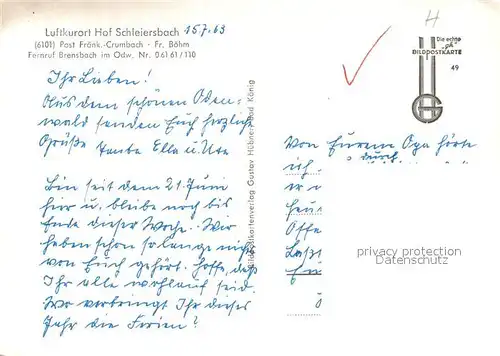 Luftkurort Hof Schleiersbach 15.7.63
(6101) Post Fränk.-Crumbach · Fr. Böhm
Fernruf Brensbach im Odw. Nr. 06161/110
Ihr Lieben!
Aus dem schönen Oden-
wald senden Euch herzliche
Grüße Tante Ella u. Ute
Bin seit dem 21. Juni
hier u. bleibe noch bis
Ende dieser Woche. Wir
haben schon so lange nichts
von Euch gehört. Hoffe, daß
Ihr alle wohlauf seid.
Wo verbringt Ihr dieses
Jahr die Ferien?
Bildpostkartenverlag Gustav Hübner, Bad König
H
Die echte
„gh“
BILDPOSTKARTE
49
Von Eurem Opa hörte
ich durch
privacy protection
Datenschutz